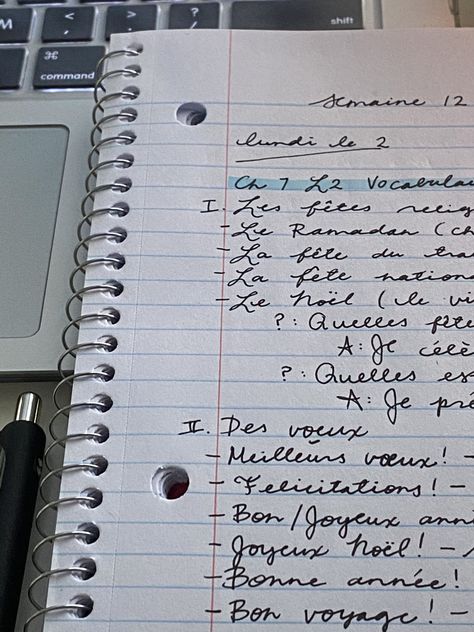 M
<
,
>
.
?
/
shift
⌘
command
Semaine 12
lundi le 2
Ch 7 L2 Vocabulai
I. Les fêtes relig
- Le Ramadan (ch
- La fête du tra
- La fête nation
- Le Noël (le vi
?: Quelles fête
A: Je célè
?: Quelles es
A: Je pré
II. Des vœux
- Meilleurs vœux! -
- Felicitations! -
- Bon/Joyeux ann
- Joyeux Noël! -
- Bonne année!
- Bon voyage! -